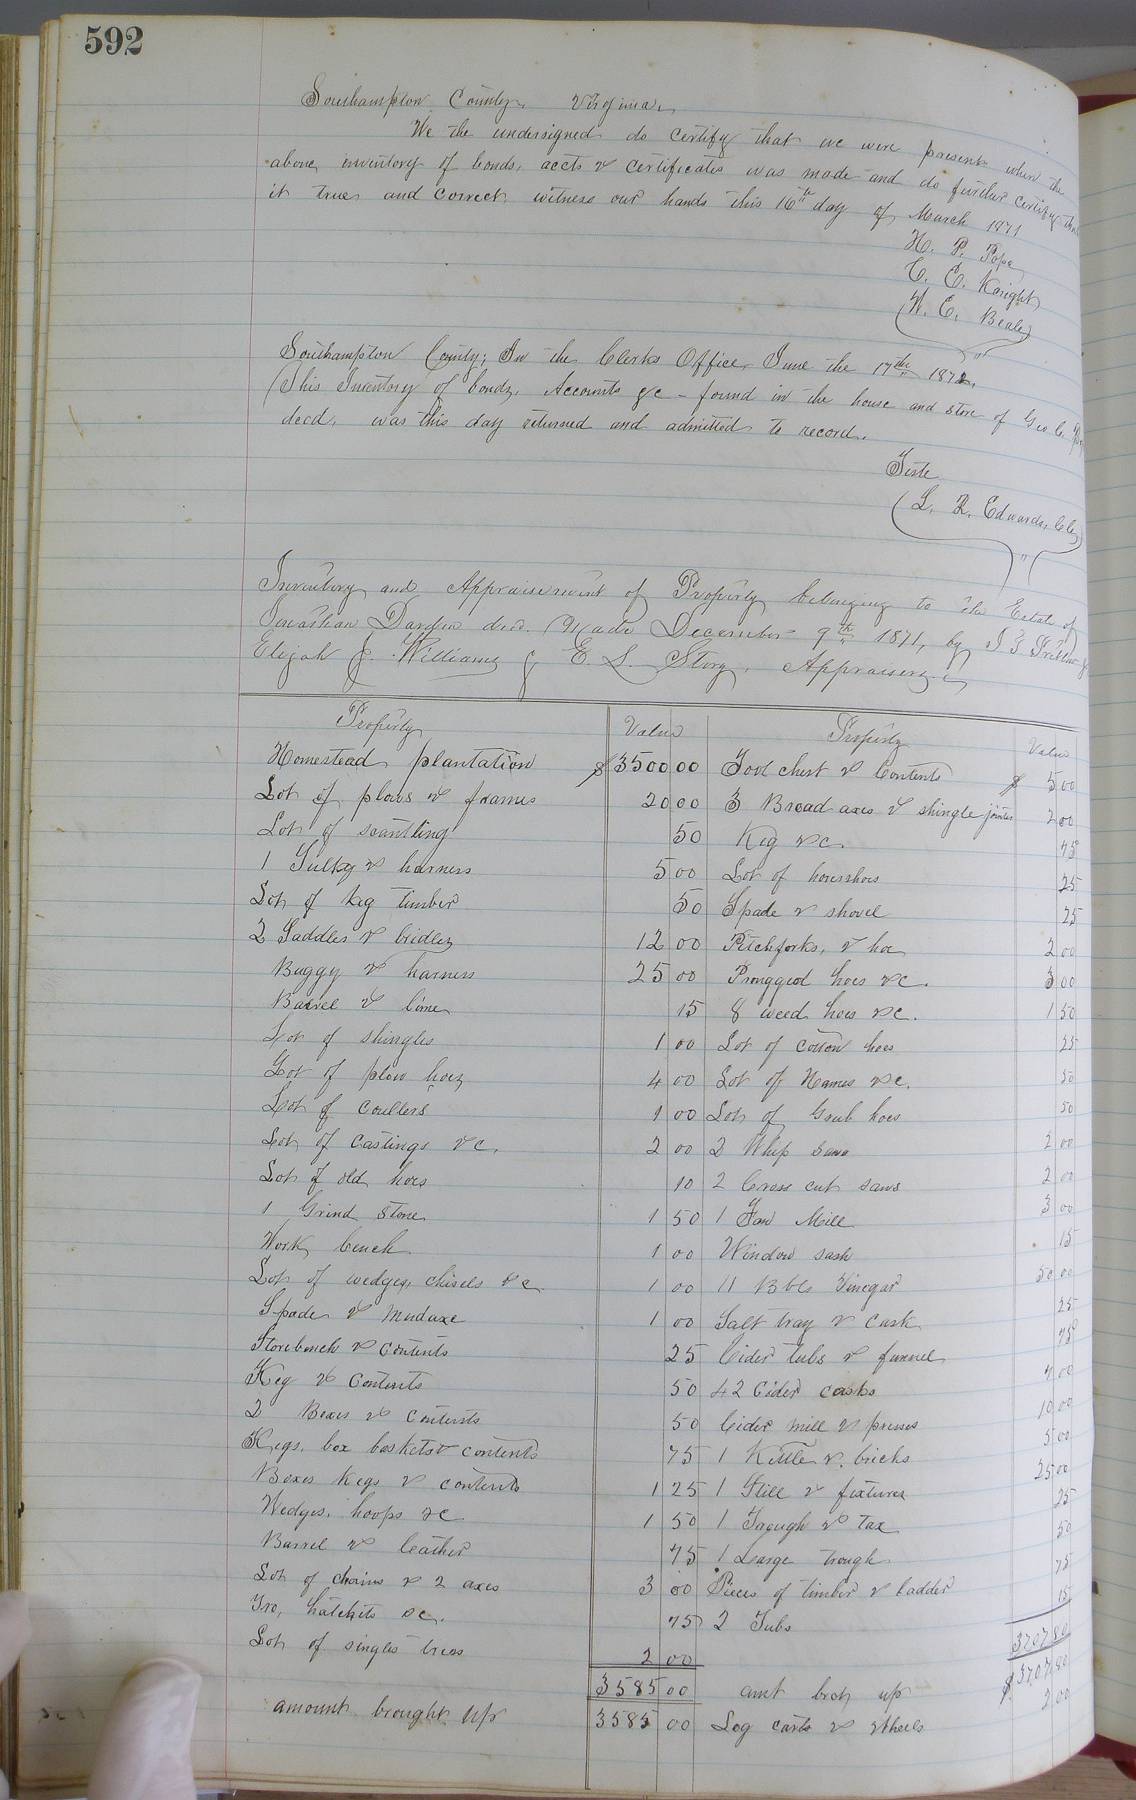 592
Southampton County, Virginia,
We the undersigned do certify that we were present when the
above, inventory of bonds, accts & certificates was made and do further certify that
it true and correct, witness our hands this 16th day of March 1871
H. P. Pope
C. E. Knight
W. E. Beale
Southampton County; In the Clerks Office, June the 17th 1872.
This Inventory of bonds, Accounts &c - found in the house and store of Geo C.
decd. was this day returned and admitted to record.
Teste
L. R. Edwards, Clk
Inventory and Appraisement of Property belonging to the Estate of
Jonathan Darden decd. Made December 9th 1871, by
Elijah J. Williams & E. S. Story, Appraisers
Property Value Property Value
Homestead plantation $3500 00 Tool chest & Contents $ 5 00
Lot of plows & frames 20 00 3 Broad axes & shingle jointer 2 00
Lot of scantling 50 Keg &c. 75
1 Sulky & harness 5 00 Lot of horseshoes 25
Lot of keg timber 50 Spade & shovel 25
2 Saddles & bridles 12 00 Pitchforks, & hoe 2 00
Buggy & harness 25 00 Pronged hoes &c. 3 00
Barrel & lime 15 8 weed hoes &c. 1 50
Lot of shingles 1 00 Lot of cotton hoes 25
Lot of plow hoes 4 00 Lot of Hames &c. 50
Lot of coulters 1 00 Lot of Grub hoes 50
Lot of castings &c. 2 00 2 Whip saws 2 00
Lot of old hoes 10 2 Cross cut saws 2 00
1 Grind Stone 1 50 1 Fan Mill 3 00
Work bench 1 00 Window sash 15
Lot of wedges, chisels &c 1 00 11 Bbls Vinegar 50 00
Spade & Mudaxe 1 00 Salt tray & cask 25
Storebench & contents 25 Cider tubs & funnel 75
Keg & Contents 50 42 Cider casks 7 00
2 Boxes & contents 50 Cider mill & presses 10 00
Kegs, box baskets & contents 75 1 Kettle & bricks 5 00
Boxes kegs & contents 1 25 1 Still & fixtures 25 00
Wedges, hoops &c 1 50 1 Trough & Tax 25
Barrel & leather 75 1 Large trough 50
Lot of chains & 2 axes 3 00 Pieces of timber & ladder 75
Fro, hatchets &c. 75 2 Tubs 15
Lot of singles trees 2 00 3707 80
3585 00 amt brot up $3707 80
amount brought up 3585 00 Log carts & wheels 2 00